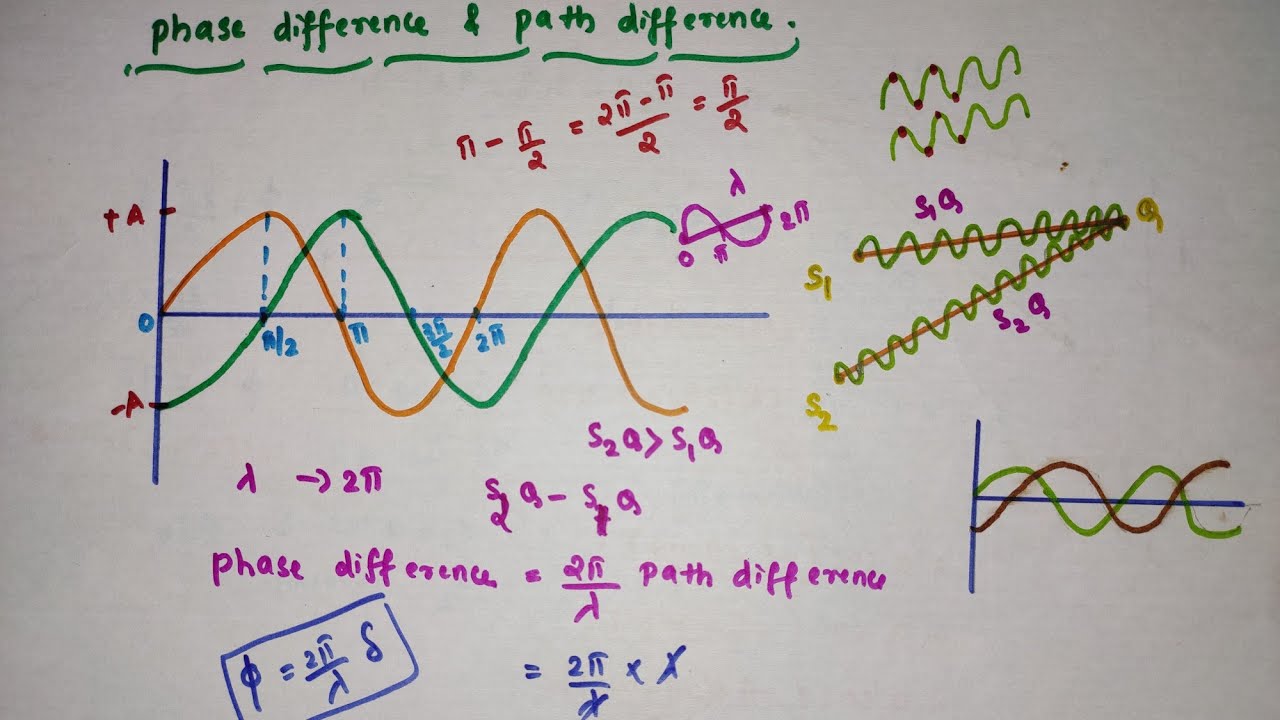 phase difference & path difference.
π - π/2 = 2π - π/2 = π/2
+A
λ
0 π 2π
S₁Q
Q
S₁
0 π/2 π 3π/2 2π
S₂Q
-A
S₂
S₂Q > S₁Q
λ → 2π
S₂Q - S₁Q
phase difference = 2π/λ path difference
ϕ = 2π/λ δ
= 2π/λ × λ